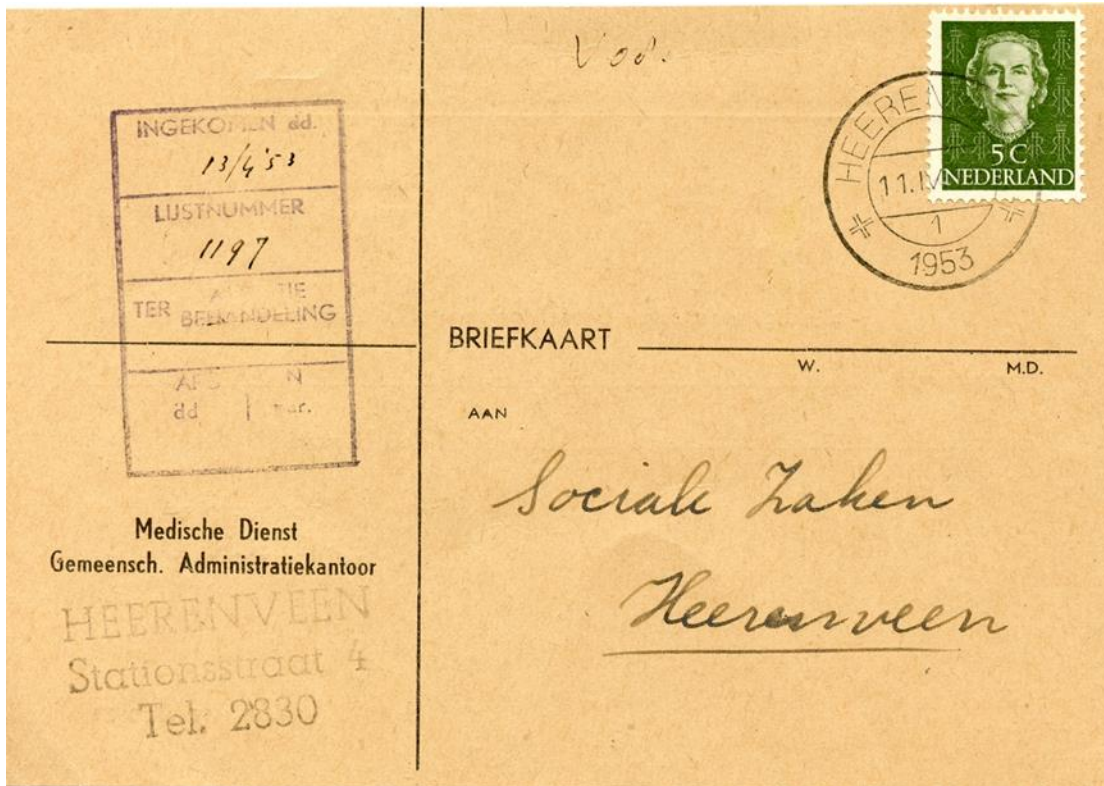 INGEKOMEN dd.
13/4 '53
LIJSTNUMMER
1197
TER
BEHANDELING
dd
Medische Dienst
Gemeensch. Administratiekantoor
HEERENVEEN
Stationsstraat 4
Tel. 2830
5 C
NEDERLAND
11.IV
1
1953
BRIEFKAART
W. M.D.
AAN
Sociale Zaken
Heerenveen